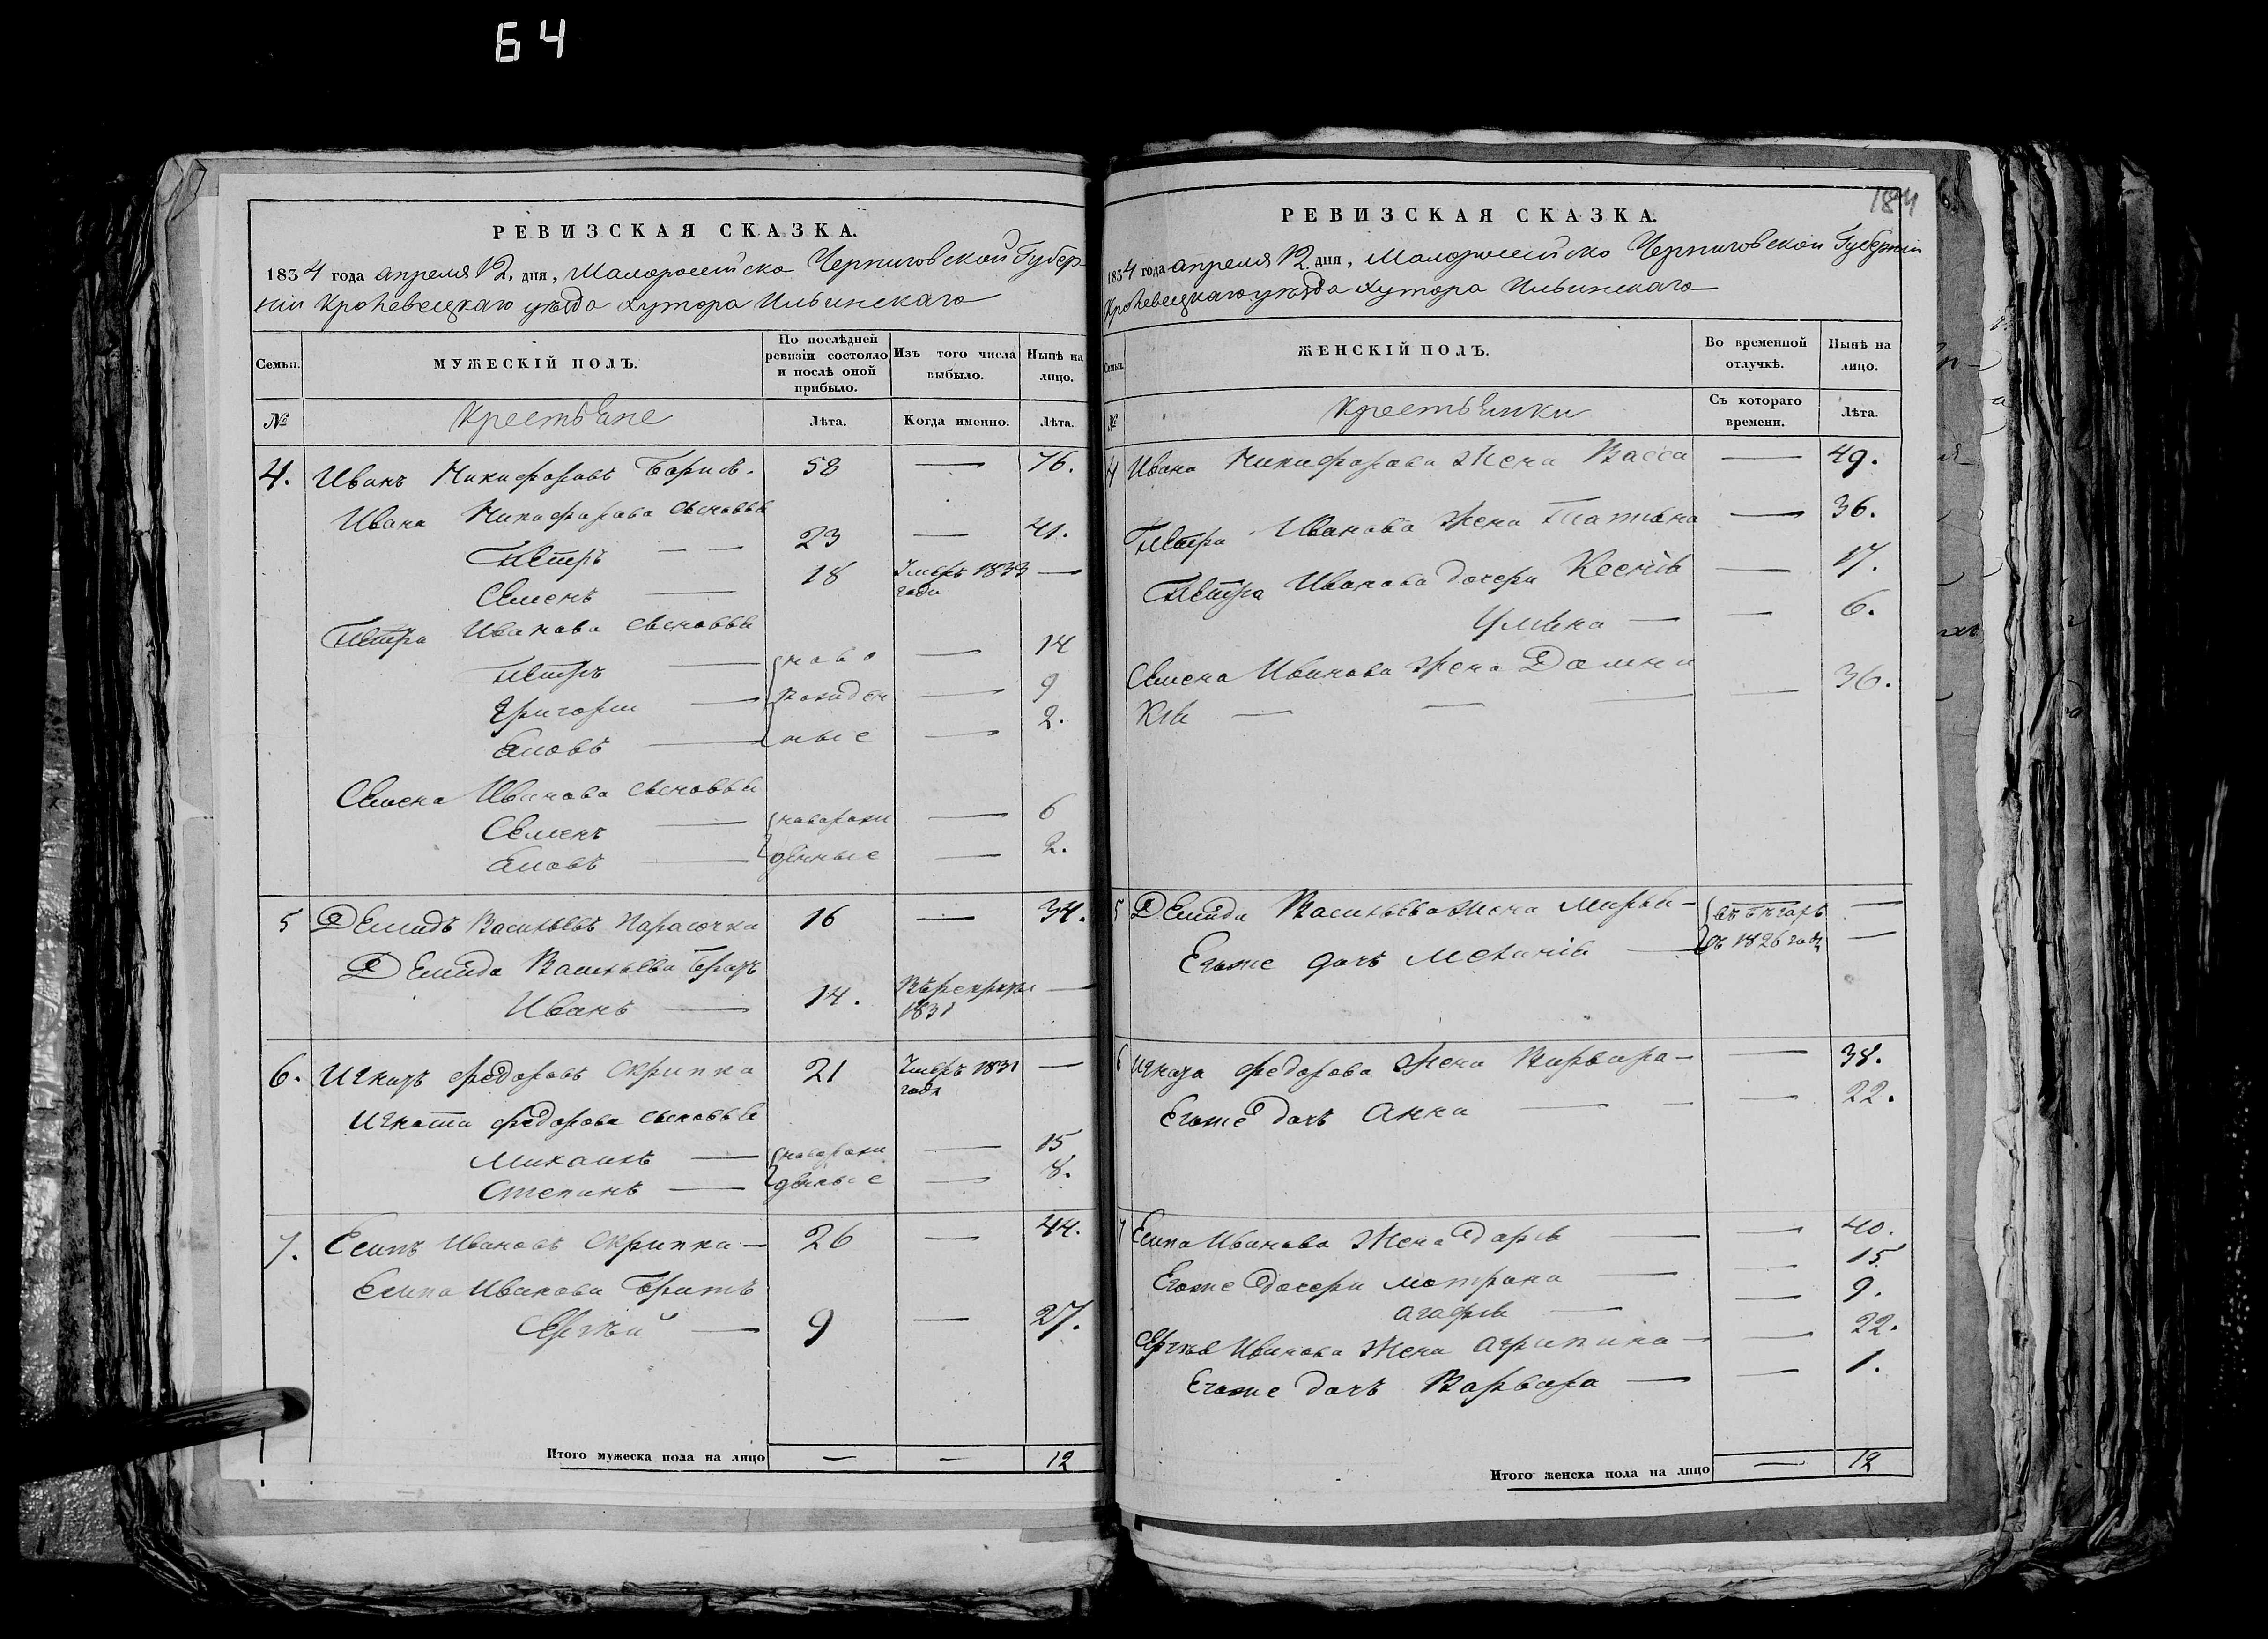 64
РЕВИЗСКАЯ СКАЗКА.
1834 года апреля 12. дня, Малоросейско Черниговской Губер-
ніи Кролевецкаго уѣзда хутора Ильинскаго
Семьи. МУЖЕСКІЙ ПОЛЪ. По послѣдней ревизіи состояло и послѣ оной прибыло. Изъ того числа выбыло. Нынѣ на лицо.
№ Крестьяне Лѣта. Когда именно. Лѣта.
4. Иванъ Никифоровъ 58 — 76.
Ивана Никифорова сыновья
Петръ — — 23 — 41.
Семенъ — 18 Умеръ 1833 года —
Петра Иванова сыновья
Петръ — ново — 14
Григорій — рожден — 9
— ные — 2.
Семена Иванова сыновья
Семенъ — {новорож — 6
— денные — 2.
5 Демидъ Васильевъ Парасочка 16 — 34.
Демида Васильева братъ
Иванъ — 14. Въ рекруты 1831 —
6. Игнатъ Федоровъ Скрипка 21 Умеръ 1831 года —
Игната Федорова сыновья
Михаилъ — {новорож — 15
Степанъ — денные — 8.
7. Есипъ Ивановъ Скрипка — 26 — 44.
Есипа Иванова братъ
Сергѣй — 9 — 27.
Итого мужеска пола на лицо — — 12
184
РЕВИЗСКАЯ СКАЗКА.
1834 года апреля 12. дня, Малоросейско Черниговской Губерніи
Кролевецкаго уѣзда хутора Ильинскаго
Семьи. ЖЕНСКІЙ ПОЛЪ. Во временной отлучкѣ. Нынѣ на лицо.
№ Крестьянки Съ котораго времени. Лѣта.
4 Ивана Никифорова жена Васса — 49.
Петра Иванова жена Татьяна — 36.
Петра Иванова дочери Ксенія — 17.
Ульяна — — 6.
Семена Иванова жена Домини
кія — — — — 36.
5 Демида Васильева жена Марья — {въ бѣгахъ —
Егоже дочь Меланія — съ 1826 года —
6 Игната Федорова жена Варвара — — 38.
Егоже дочь Анна — — — 22.
7 Есипа Иванова жена Дарія — — 40.
Егоже дочери Матрона — — 15.
Агафія — — 9.
Сергѣя Иванова жена Агрипина — — 22.
Егоже дочь Варвара — — 1.
Итого женска пола на лицо — 12